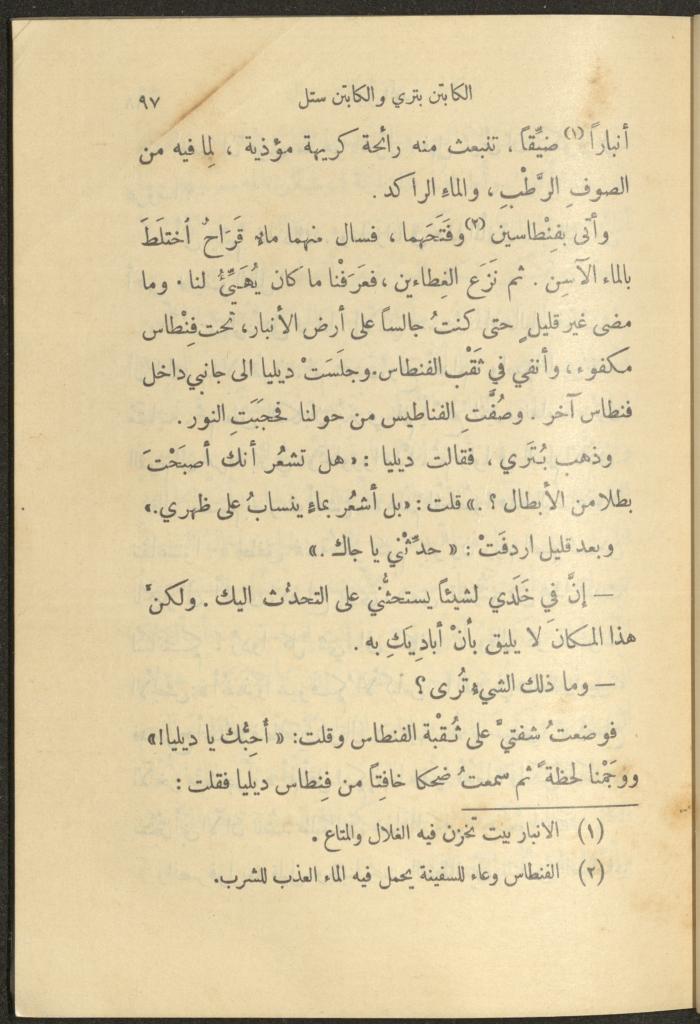 الكابتن بتري والكابتن ستل ٩٧
أنباراً (١) ضيِّقاً، تنبعث منه رائحة كريهة مؤذية ، لِما فيه من
الصوفِ الرَّطْبِ ، والماء الراكد .
وأتى بفِنْطاسين (٢) وفَتَحَهما ، فسال منهما ماء قَرَاحٌ اختلَطَ
بالماء الآسِن . ثم نَزَع الغِطاءين ، فعَرَفْنا ما كان يُهَيِّئُ لنا . وما
مضى غير قليلٍ حتى كنتُ جالساً على أرض الأنبار، تحت فِنْطاس
مكفوء ، وأنفي في ثَقْب الفنطاس. وجلَسَتْ ديليا الى جانبي داخل
فنطاس آخر . وصُفَّتِ الفناطيس من حولنا فحجَبَتِ النور .
وذهب بُتَري ، فقالت ديليا : « هل تشعُر أنك أصبَحْتَ
بطلا من الأبطال ؟ .» قلت : «بل أشعُر بماءٍ ينسابُ على ظهري.»
وبعد قليل اردفَتْ : « حدِّثْني يا جاك .»
— إنَّ في خَلَدي لشيئاً يستحثُّني على التحدُث اليك . ولكنَّ
هذا المكانَ لا يليق بأنْ أبادِيَكِ به .
— وما ذلك الشيء تُرى ؟
فوضعتُ شفتيَّ على ثُقْبة الفنطاس وقلت: « أحِبُّك يا ديليا!»
ووجَمْنا لحظةً ثم سمعتُ ضحكا خافِتاً من فِنطاس ديليا فقلت :
(١) الانبار بيت تخزن فيه الغلال والمتاع .
(٢) الفنطاس وعاء للسفينة يحمل فيه الماء العذب للشرب.